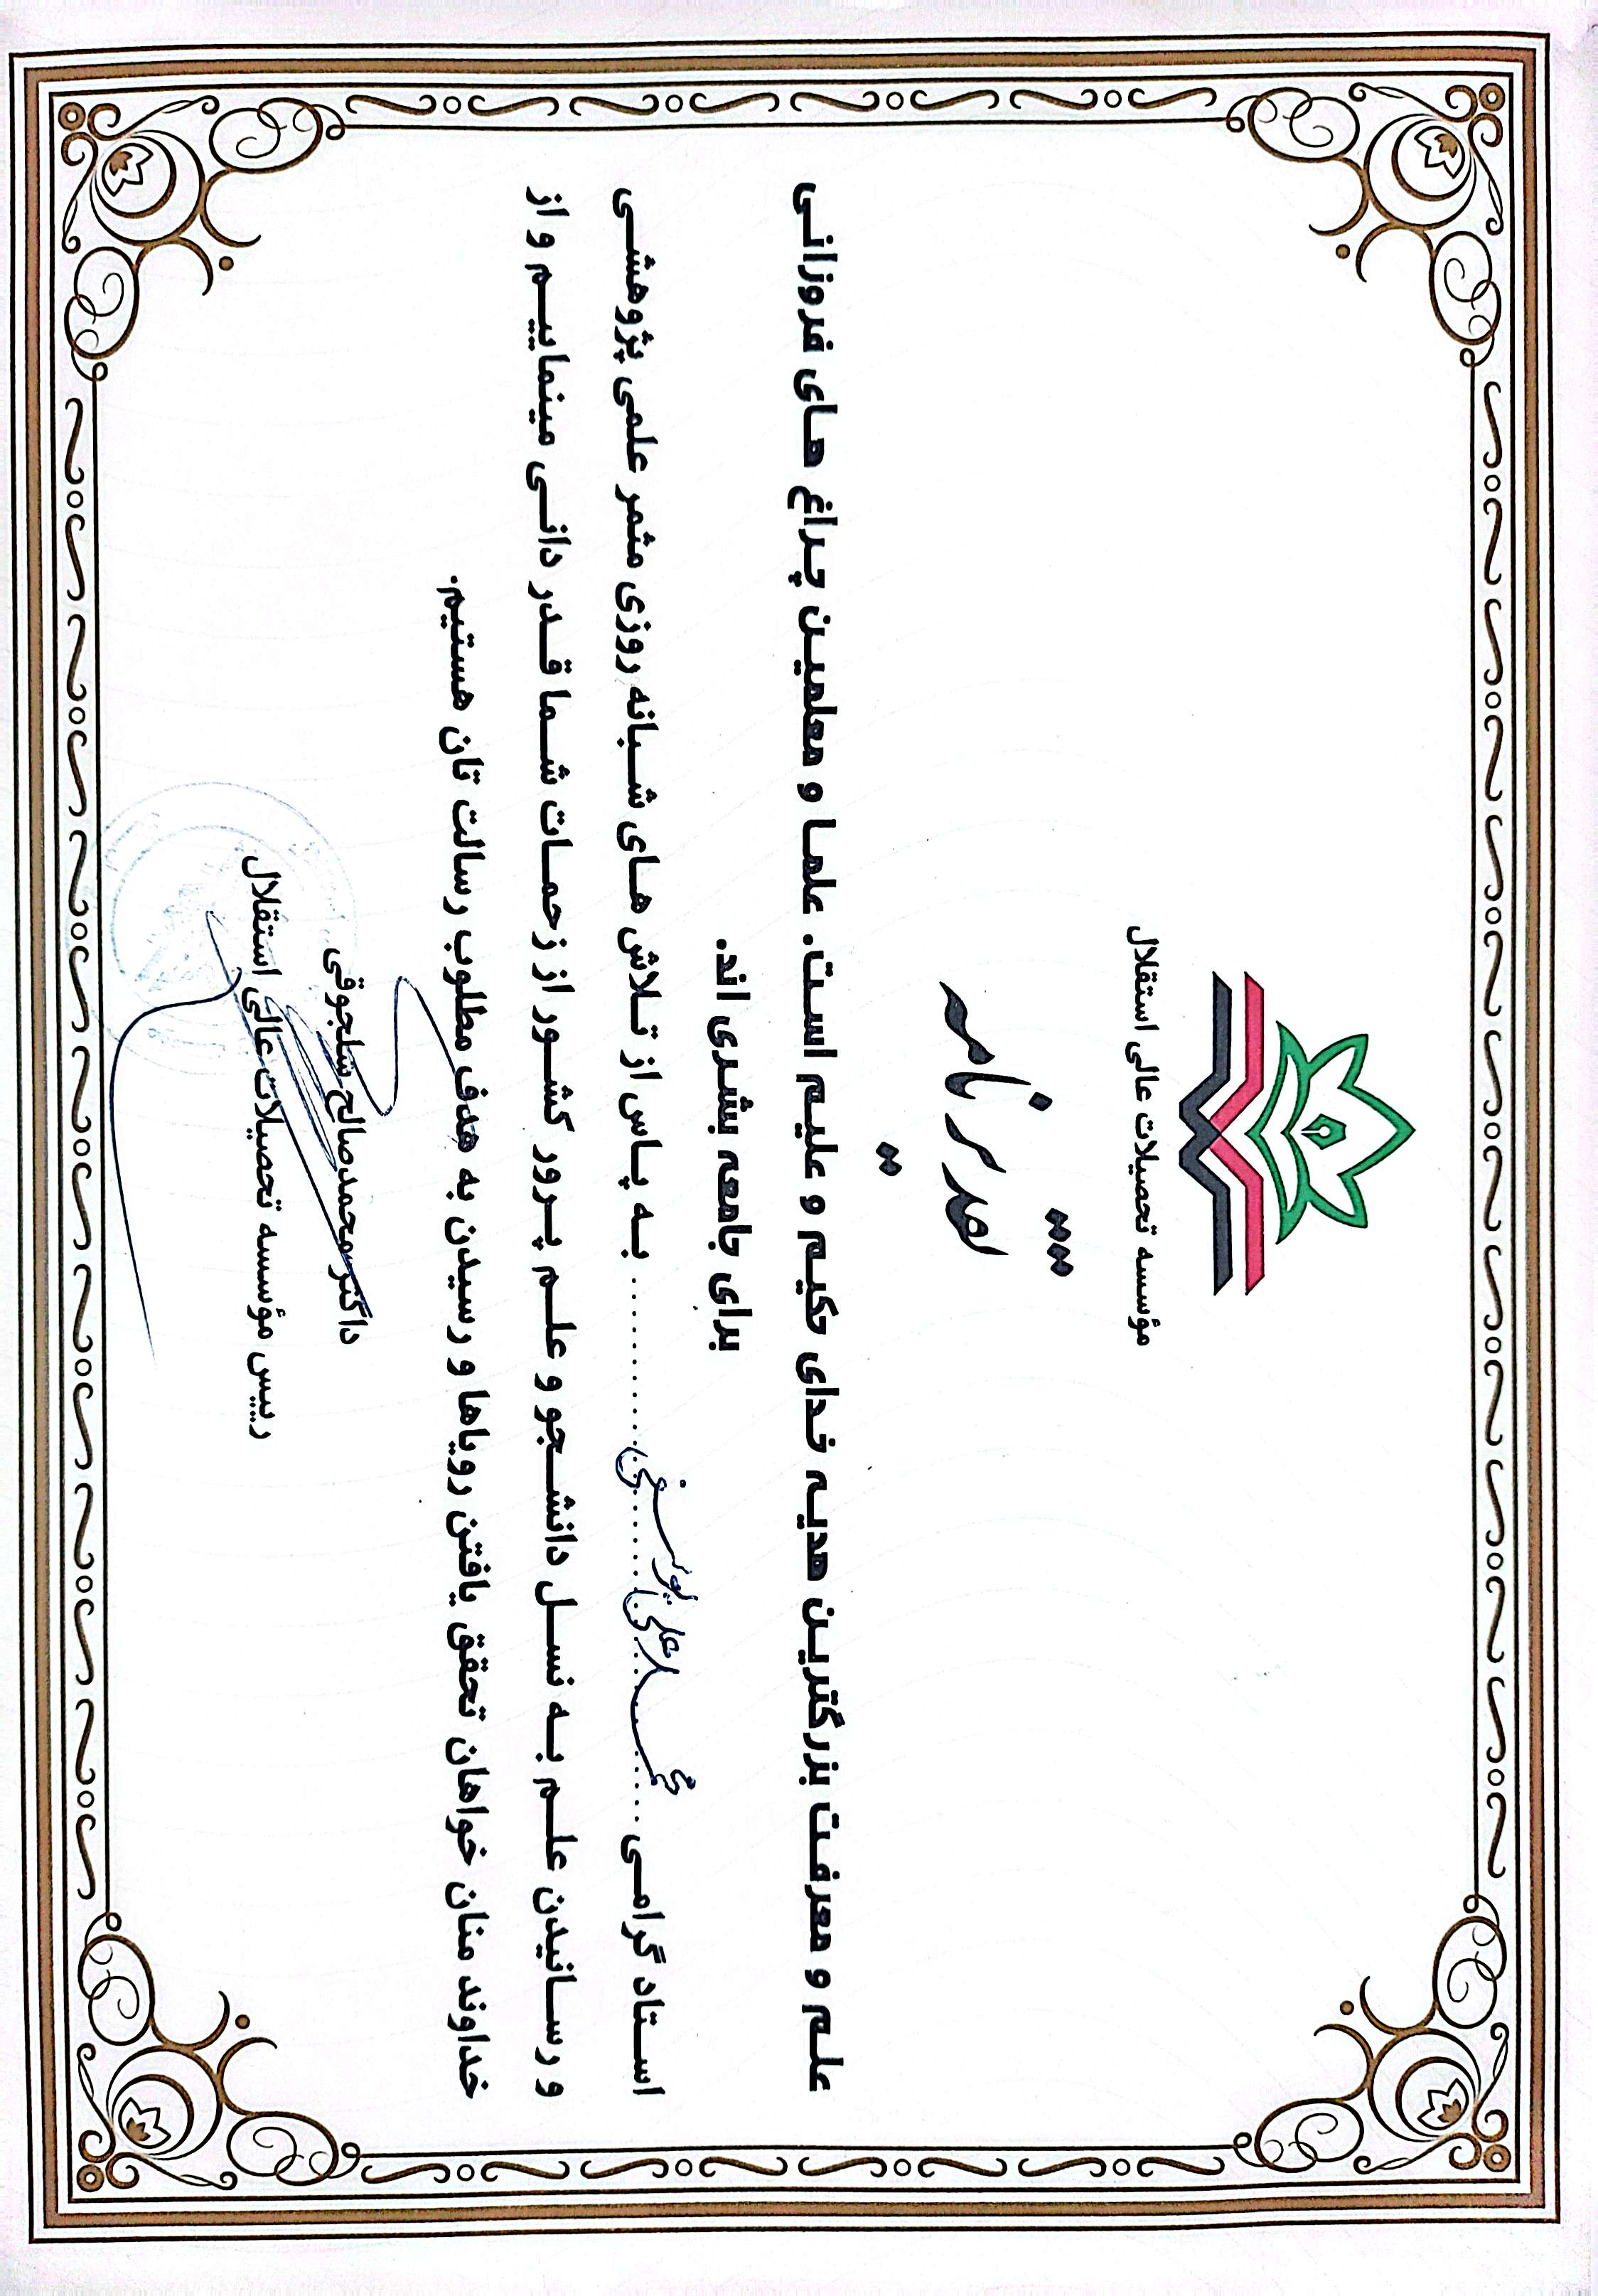 مؤسسه تحصیلات عالی استقلال
تقدیرنامه
علم و معرفت بزرگترین هدیه خدای حکیم و علیم است. علما و معلمین چراغ های فروزانی
برای جامعه بشری اند.
استاد گرامی ........ علی یوسفی ........ به پاس از تلاش های شبانه روزی مثمر علمی پژوهشی
و رسانیدن علم به نسل دانشجو و علم پرور کشور از زحمات شما قدر دانی مینماییم و از
خداوند منان خواهان تحقق یافتن رویاها و رسیدن به هدف مطلوب رسالت تان هستیم.
داکتر محمدصالح سلجوقی
رییس مؤسسه تحصیلات عالی استقلال